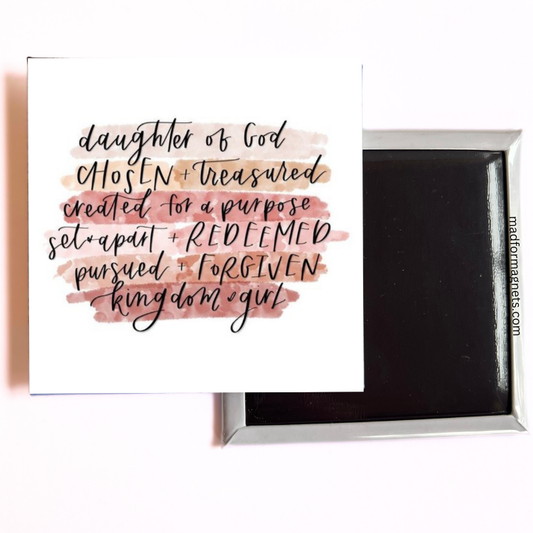 daughter of God
CHOSEN + treasured
created for a purpose
set apart + REDEEMED
pursued + FORGIVEN
kingdom girl
madformagnets.com